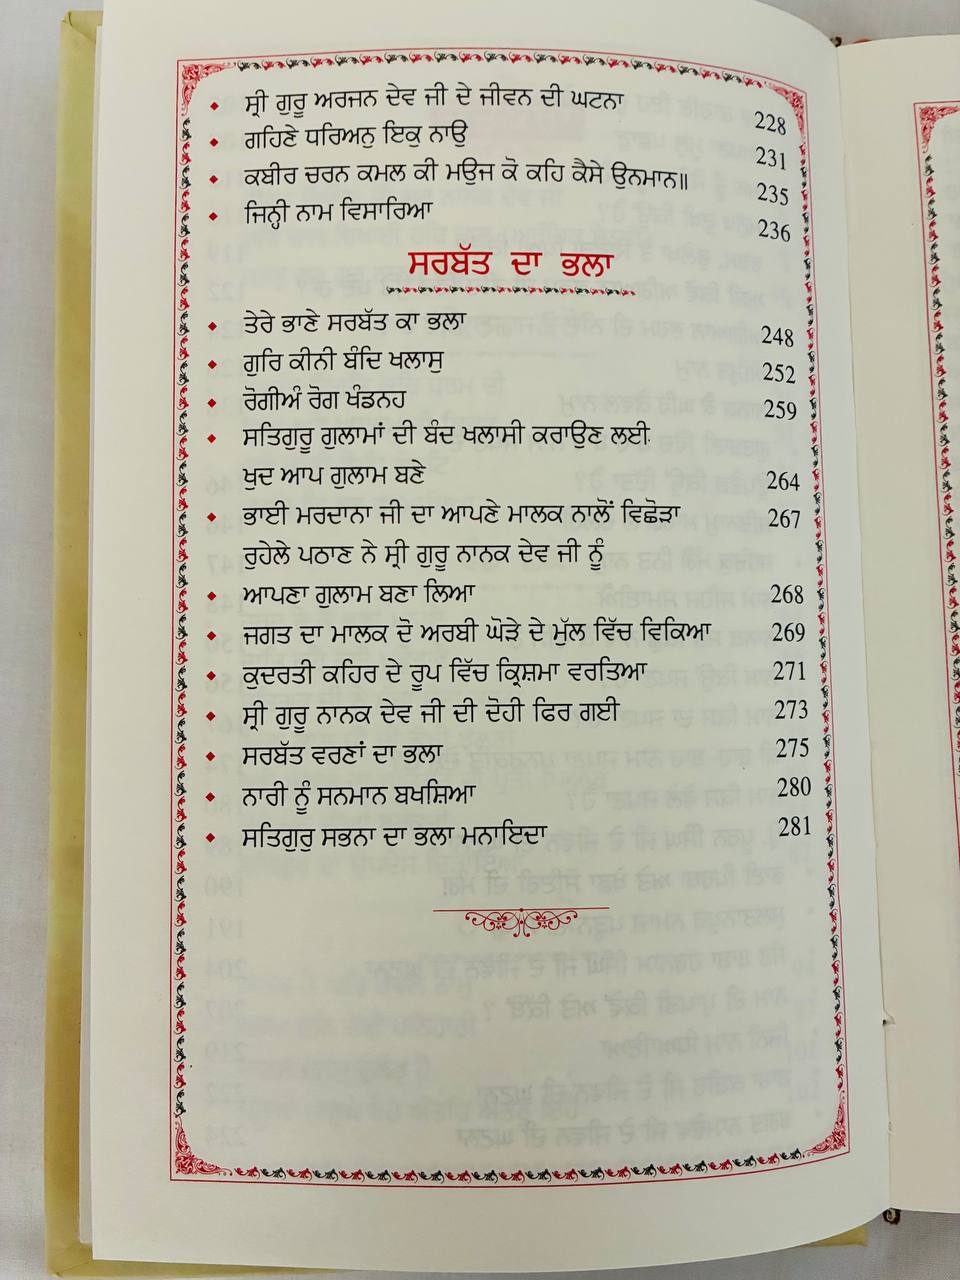 ਸ੍ਰੀ ਗੁਰੂ ਅਰਜਨ ਦੇਵ ਜੀ ਦੇ ਜੀਵਨ ਦੀ ਘਟਨਾ 228
ਗਹਿਣੇ ਧਰਿਅਨੁ ਇਕੁ ਨਾਉ 231
ਕਬੀਰ ਚਰਨ ਕਮਲ ਕੀ ਮਉਜ ਕੋ ਕਹਿ ਕੈਸੇ ਉਨਮਾਨ॥ 235
ਜਿਨ੍ਹੀ ਨਾਮ ਵਿਸਾਰਿਆ 236
ਸਰਬੱਤ ਦਾ ਭਲਾ
ਤੇਰੇ ਭਾਣੇ ਸਰਬੱਤ ਕਾ ਭਲਾ 248
ਗੁਰਿ ਕੀਨੀ ਬੰਦਿ ਖਲਾਸੁ 252
ਰੋਗੀਅੰ ਰੋਗ ਖੰਡਨਹ 259
ਸਤਿਗੁਰੂ ਗੁਲਾਮਾਂ ਦੀ ਬੰਦ ਖਲਾਸੀ ਕਰਾਉਣ ਲਈ
ਖੁਦ ਆਪ ਗੁਲਾਮ ਬਣੇ 264
ਭਾਈ ਮਰਦਾਨਾ ਜੀ ਦਾ ਆਪਣੇ ਮਾਲਕ ਨਾਲੋਂ ਵਿਛੋੜਾ 267
ਰੁਹੇਲੇ ਪਠਾਣ ਨੇ ਸ੍ਰੀ ਗੁਰੂ ਨਾਨਕ ਦੇਵ ਜੀ ਨੂੰ
ਆਪਣਾ ਗੁਲਾਮ ਬਣਾ ਲਿਆ 268
ਜਗਤ ਦਾ ਮਾਲਕ ਦੋ ਅਰਬੀ ਘੋੜੇ ਦੇ ਮੁੱਲ ਵਿੱਚ ਵਿਕਿਆ 269
ਕੁਦਰਤੀ ਕਹਿਰ ਦੇ ਰੂਪ ਵਿੱਚ ਕ੍ਰਿਸ਼ਮਾ ਵਰਤਿਆ 271
ਸ੍ਰੀ ਗੁਰੂ ਨਾਨਕ ਦੇਵ ਜੀ ਦੀ ਦੋਹੀ ਫਿਰ ਗਈ 273
ਸਰਬੱਤ ਵਰਣਾਂ ਦਾ ਭਲਾ 275
ਨਾਰੀ ਨੂੰ ਸਨਮਾਨ ਬਖਸ਼ਿਆ 280
ਸਤਿਗੁਰੁ ਸਭਨਾ ਦਾ ਭਲਾ ਮਨਾਇਦਾ 281